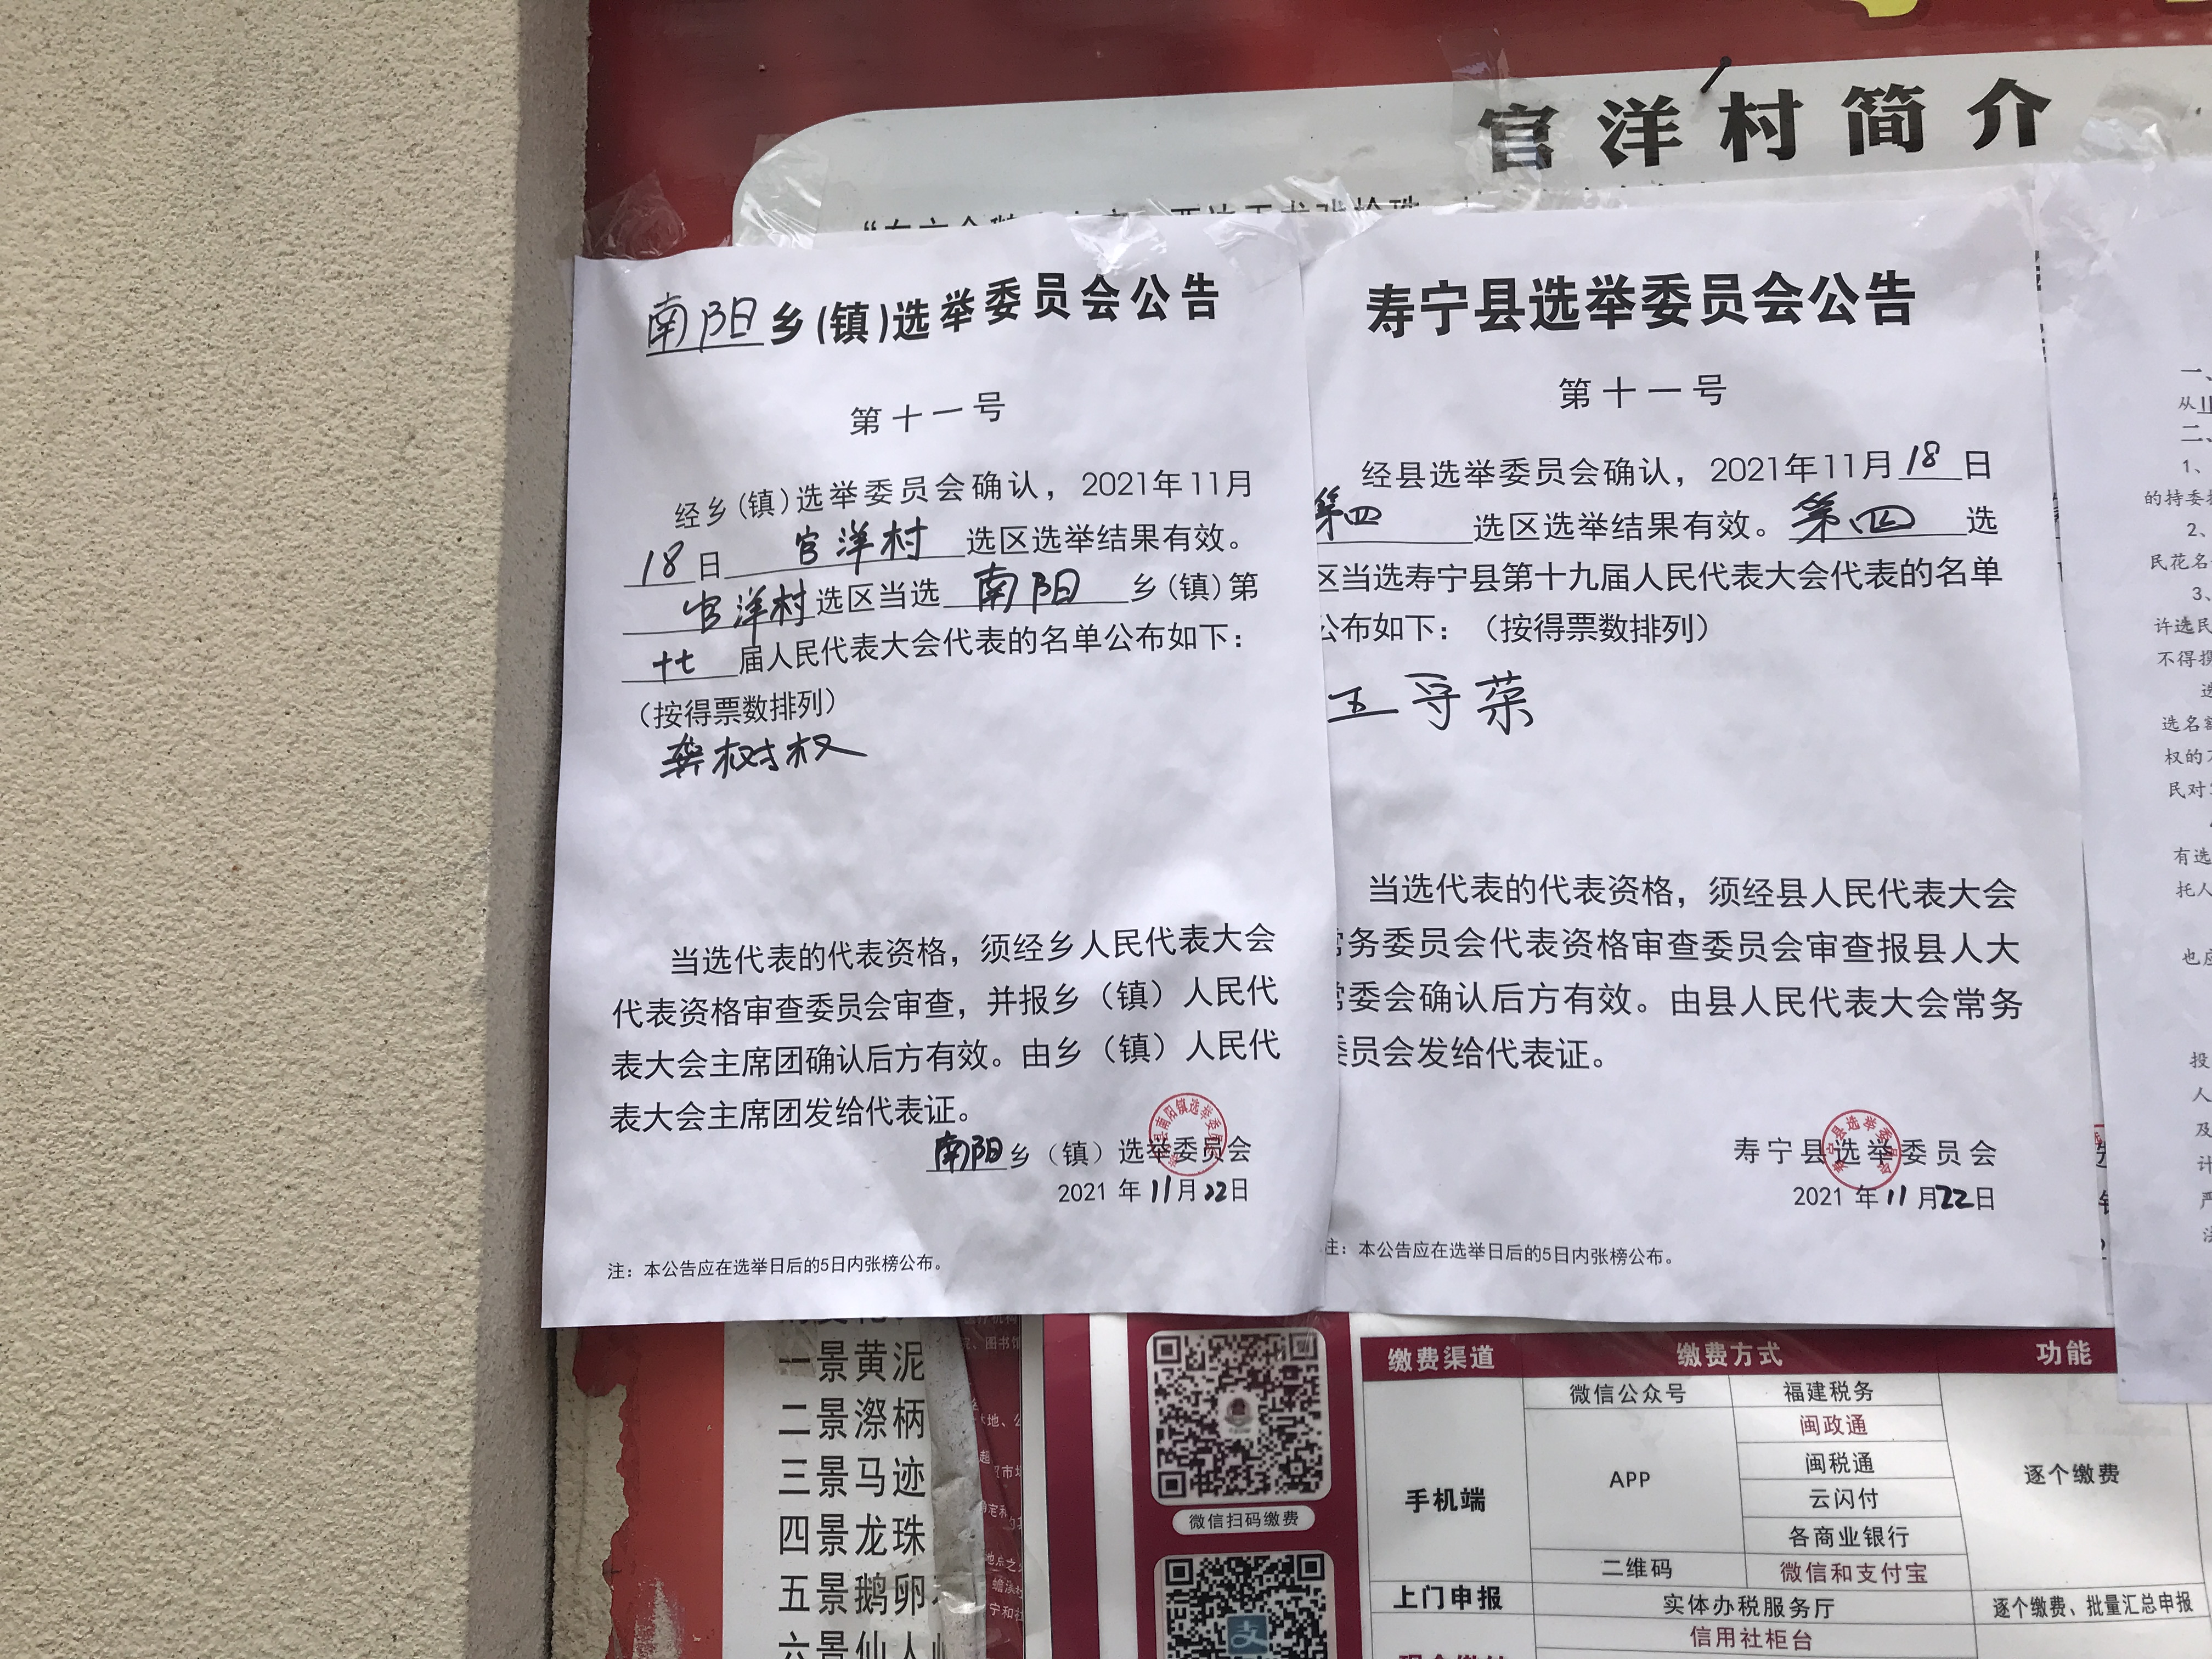 官洋村简介
南阳乡(镇)选举委员会公告
第十一号
经乡(镇)选举委员会确认，2021年11月
18日 官洋村 选区选举结果有效。
官洋村选区当选 南阳 乡(镇)第
十七 届人民代表大会代表的名单公布如下：
（按得票数排列）
龚树权
当选代表的代表资格，须经乡人民代表大会
代表资格审查委员会审查，并报乡（镇）人民代
表大会主席团确认后方有效。由乡（镇）人民代
表大会主席团发给代表证。
南阳乡（镇）选举委员会
2021年11月22日
注：本公告应在选举日后的5日内张榜公布。
寿宁县选举委员会公告
第十一号
经县选举委员会确认，2021年11月18日
第四 选区选举结果有效。第四 选
区当选寿宁县第十九届人民代表大会代表的名单
公布如下：（按得票数排列）
王守菜
当选代表的代表资格，须经县人民代表大会
常务委员会代表资格审查委员会审查报县人大
常委会确认后方有效。由县人民代表大会常务
委员会发给代表证。
寿宁县选举委员会
2021年11月22日
注：本公告应在选举日后的5日内张榜公布。
一、
从
二、
1、
的持委
2、
民花名
3、
许选民
不得
选名
权的
民对
有选
托人
也应
投
人
及
计
严
一景黄泥
二景漈柄
三景马迹
四景龙珠
五景鹅卵
六景仙人
微信扫码缴费
缴费渠道 缴费方式 功能
手机端 微信公众号 福建税务 逐个缴费
APP 闽政通
闽税通
云闪付
各商业银行
二维码 微信和支付宝
上门申报 实体办税服务厅 逐个缴费、批量汇总申报
信用社柜台